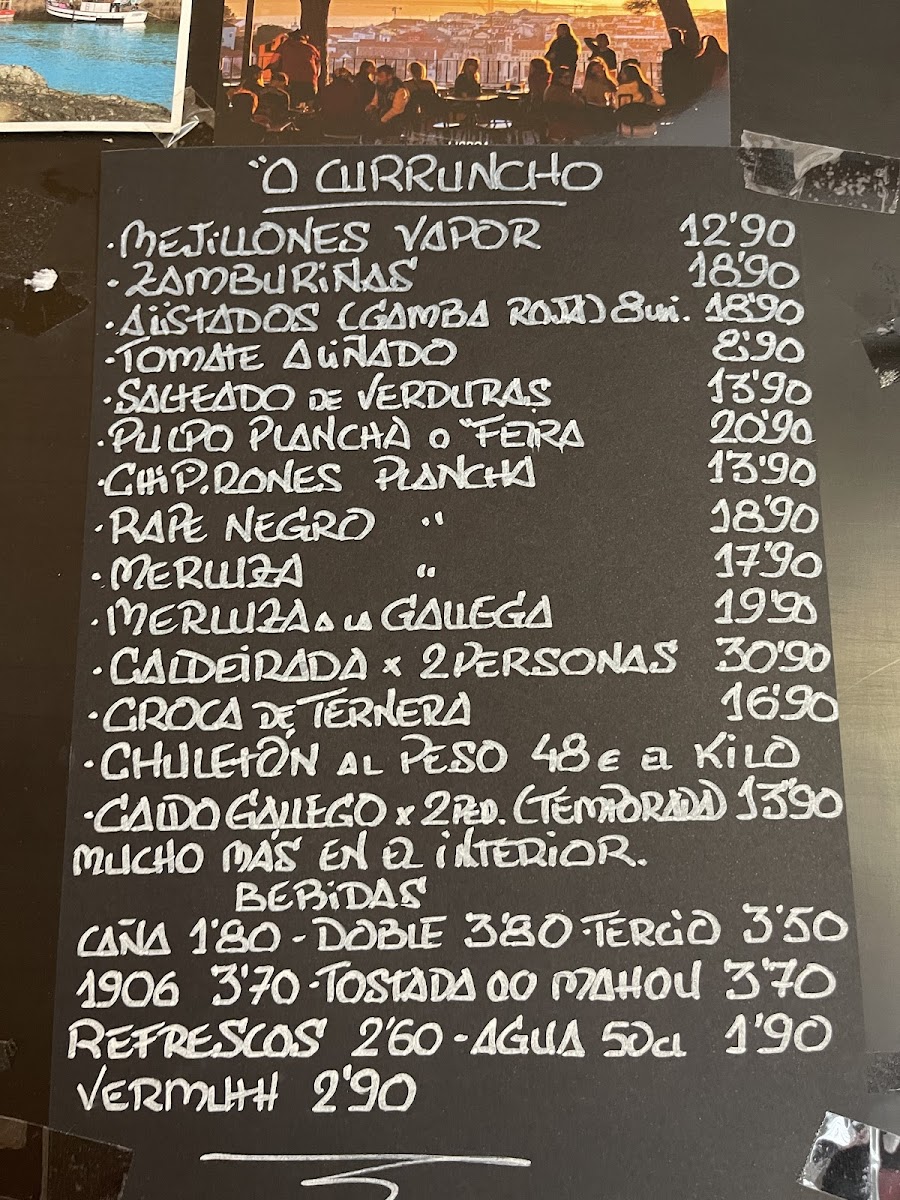 "O CURRUNCHO
·MEJILLONES VAPOR 12'90
·ZAMBURIÑAS 18'90
·ALISTADOS (GAMBA ROJA) 8 uni. 18'90
·TOMATE ALIÑADO 8'90
·SALTEADO DE VERDURAS 13'90
·PULPO PLANCHA O "FEIRA 20'90
·CHIPIRONES PLANCHA 13'90
·RAPE NEGRO " 18'90
·MERLUZA " 17'90
·MERLUZA A LA GALLEGA 19'90
·CALDEIRADA x 2 PERSONAS 30'90
·CROCA DE TERNERA 16'90
·CHULETÓN AL PESO 48€ EL KILO
·CALDO GALLEGO x 2 PED. (TEMPORADA) 13'90
MUCHO MÁS EN EL INTERIOR.
BEBIDAS
CAÑA 1'80 - DOBLE 3'80 - TERCIO 3'50
1906 3'70 - TOSTADA 00 MAHOU 3'70
REFRESCOS 2'60 - AGUA 50cl 1'90
VERMUTH 2'90